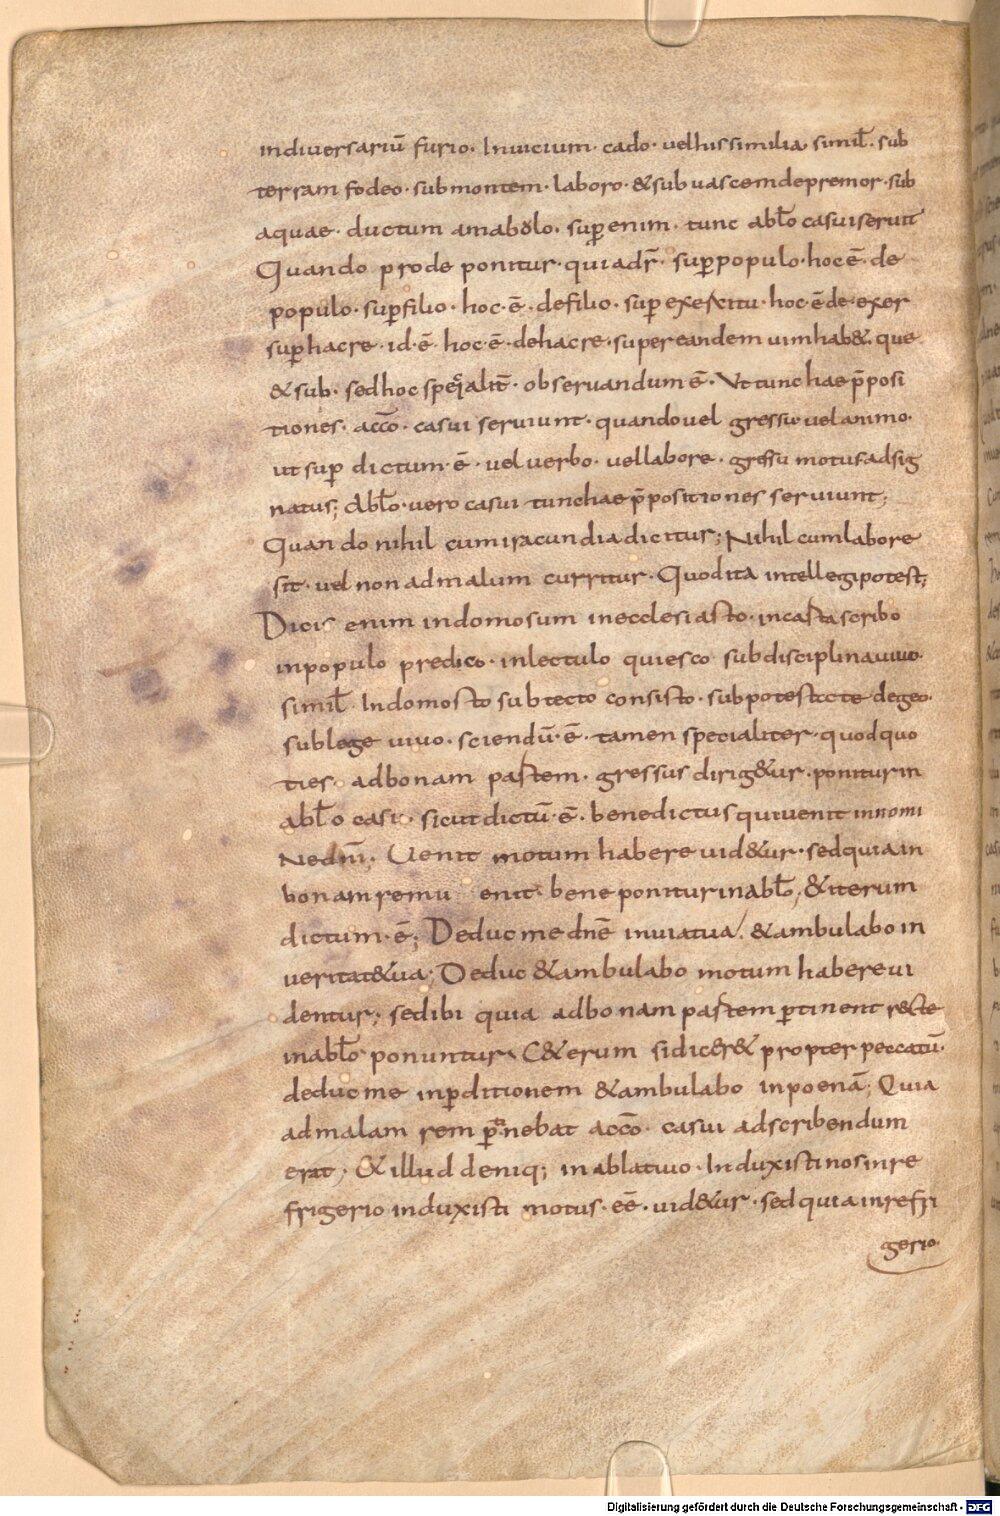 indiuersariū furio. Inuicium. cado. uelhis similia. simil̄. sub
terram fodeo. submontem. laboro. & subuascemdepremor. sub
aquae. ductum amabolo. suꝑ enim. tunc abl̄o casui seruit
Quando prode ponitur. quiadr̄. suꝑ populo. hoc ē. de
populo. suꝑ filio. hoc ē. defilio. suꝑ exercitu. hoc ē de exer
suꝑ hacre. id ē hoc ē. dehacre. super eandem uim hab&. que
& sub. sed hoc specialit̄. obseruandum ē. Ut tunc hae p̄posi
tiones. acc̄o. casui seruiunt. quando uel gressu uel animo.
ut suꝑ dictum. ē. uel uerbo. uel labore. gressu motus adsig
natus; Abl̄o. uero casui tunc hae p̄positiones seruiunt;
Quando nihil cum iracundia dicitur; Nihil cum labore
sit. uel non ad malum curritur. Quod ita intellegi potest;
Dicis enim in domo sum in ecclesia sto. in casta scribo
in populo predico. in lectulo quiesco sub disciplina uiuo.
simil̄. In domo sto sub tecto consisto. sub potestate degeo.
sub lege uiuo. sciendū. ē. tamen specialiter. quod quo
ties. ad bonam partem. gressus dirig&ur. ponitur in
abl̄o casu. sicut dictū. ē. benedictus qui uenit in nomi
ne dnī. Uenit motum habere uid&ur. sed quia in
bonam rem u enit. bene ponitur in abl̄o; & iterum
dictum. ē; Deduc me dnē in uia tua. & ambulabo in
ueritat& ua; Deduc & ambulabo motum habere ui
dentur; sed ibi quia ad bonam partem ꝑtinent recte
in abl̄o ponuntur. C&erum si dicer& propter peccatū.
deduc me in ꝑditionem & ambulabo in poenā; Quia
ad malam rem ꝑtinebat acc̄o. casui adscribendum
erat. & illud deniq; in ablatiuo. Induxisti nos in re
frigerio induxisti motus. eē. uid&ur. sed quia in refri
gerio.
Digitalisierung gefördert durch die Deutsche Forschungsgemeinschaft - DFG